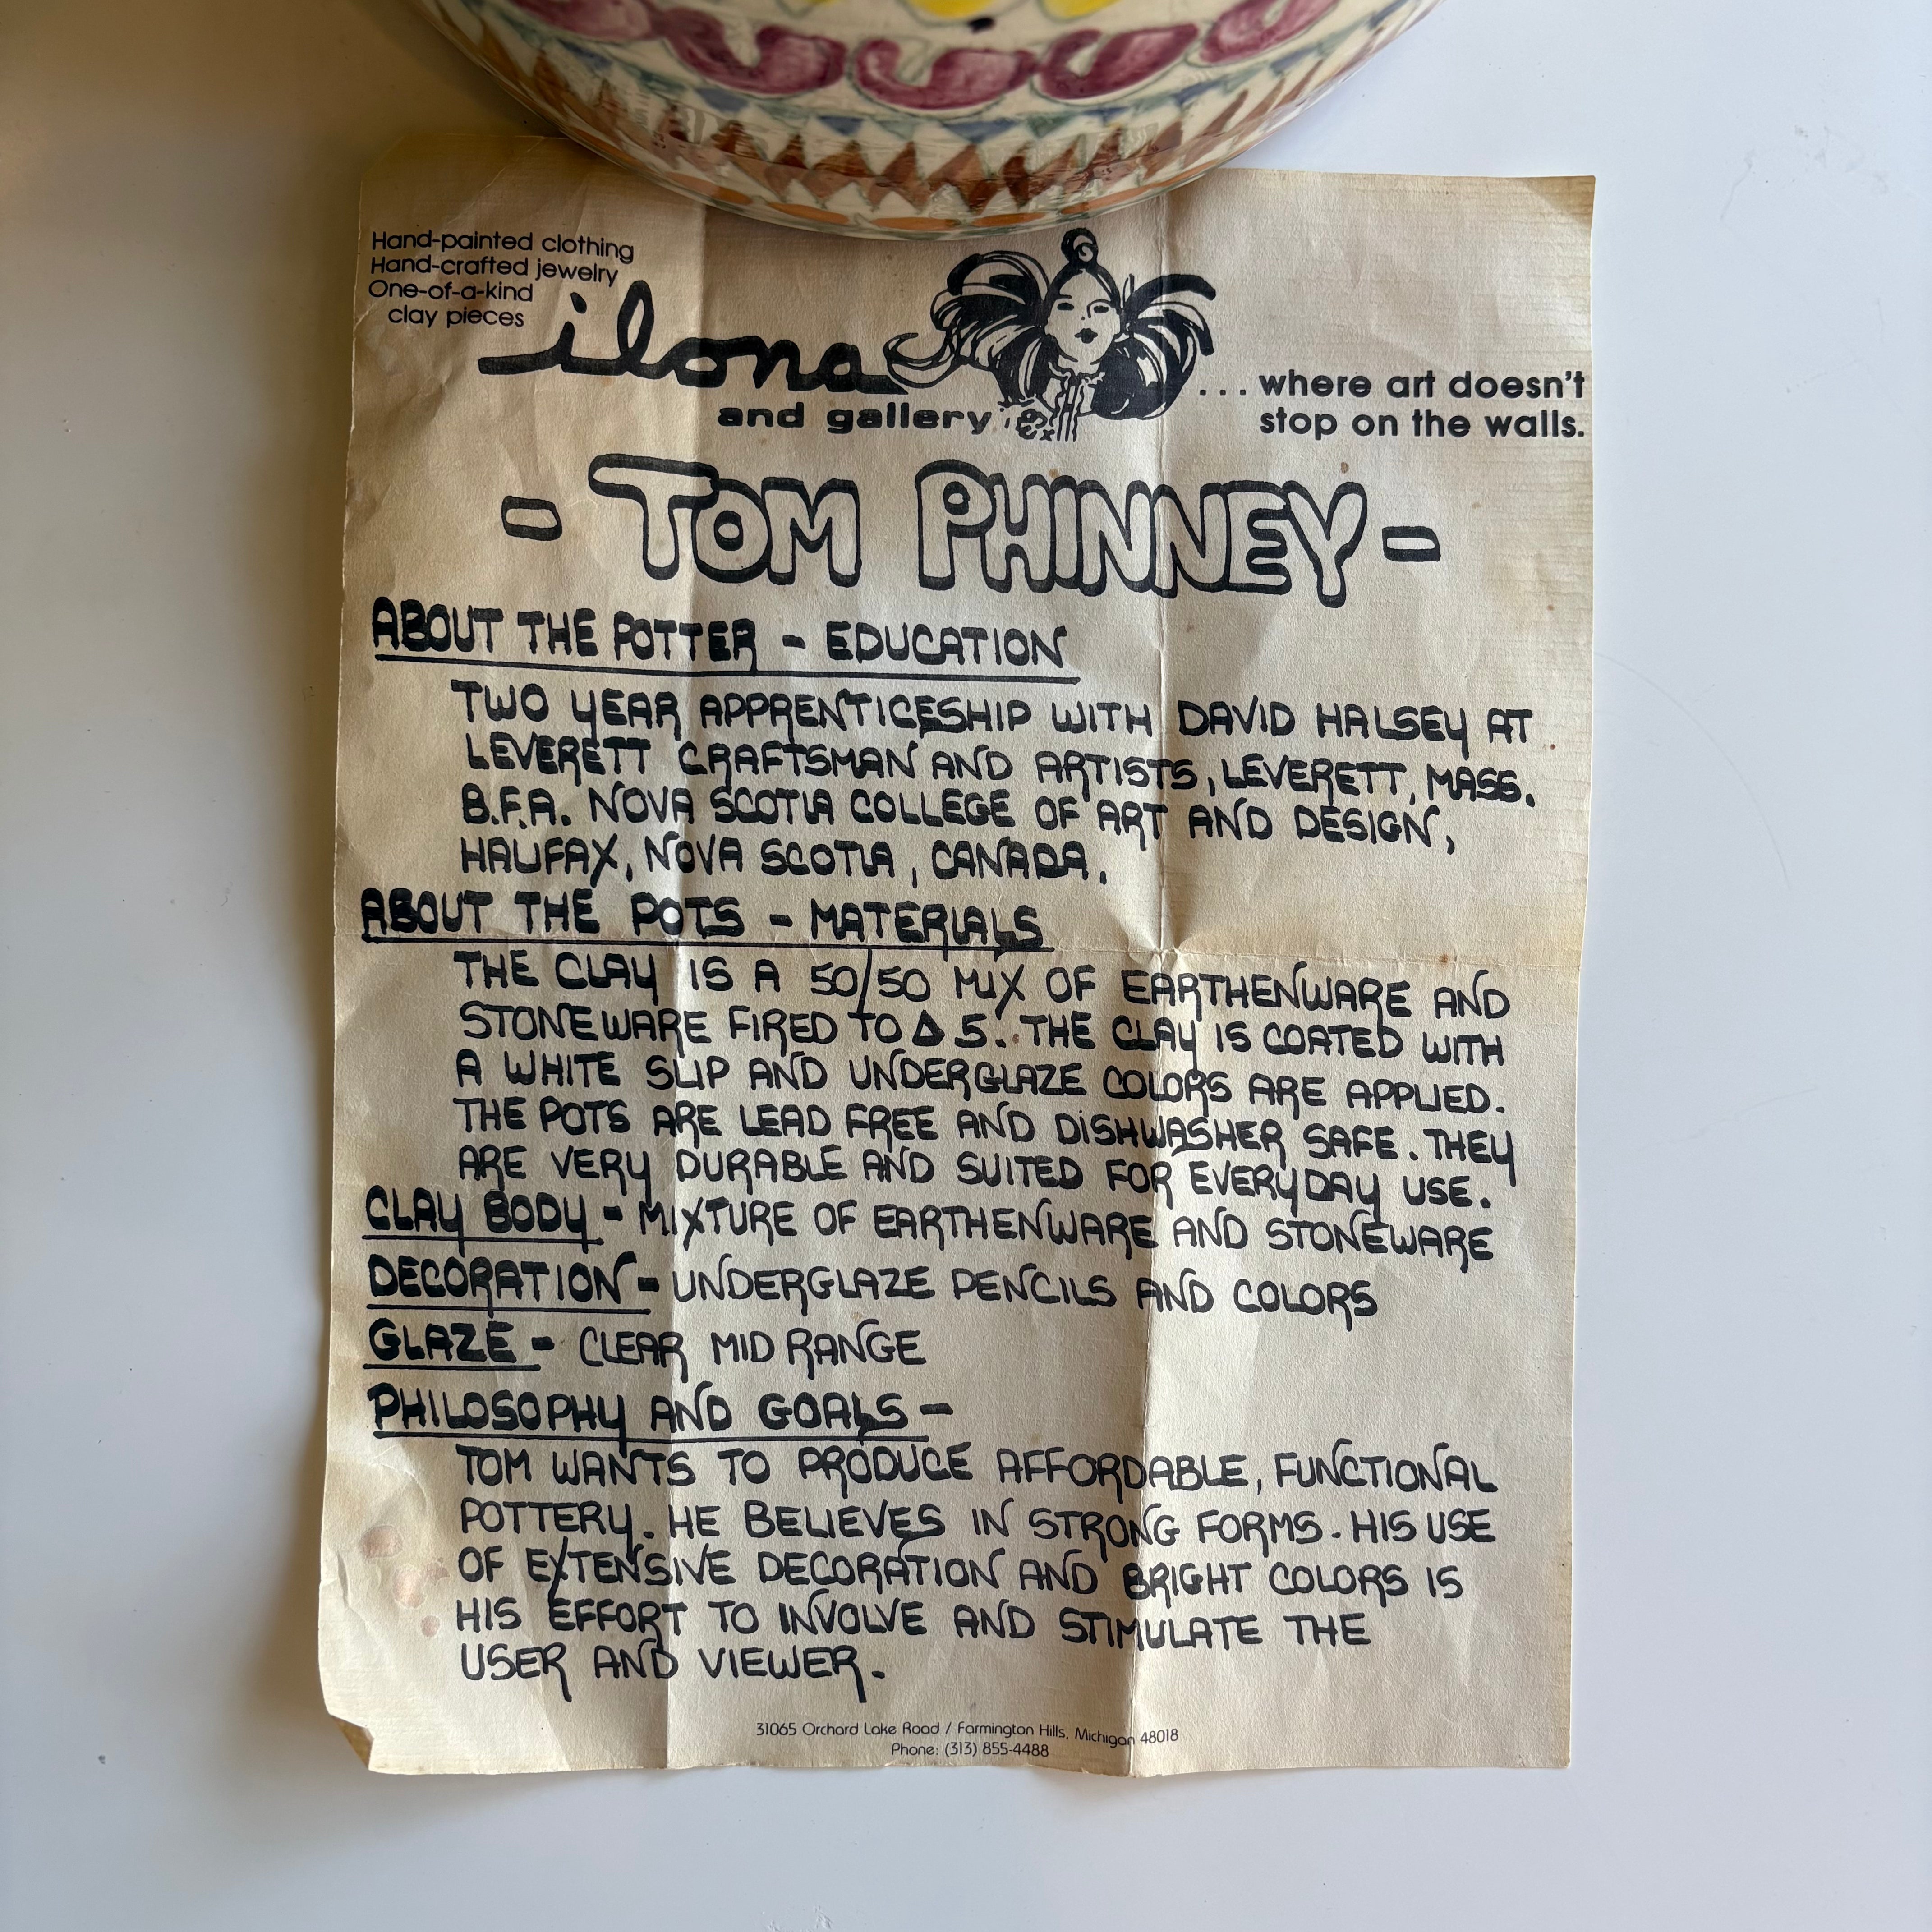 Hand-painted clothing
Hand-crafted jewelry
One-of-a-kind
clay pieces
ilona
and gallery
... where art doesn't
stop on the walls.
- TOM PHINNEY -
ABOUT THE POTTER - EDUCATION
TWO YEAR APPRENTICESHIP WITH DAVID HALSEY AT
LEVERETT CRAFTSMAN AND ARTISTS, LEVERETT, MASS.
B.F.A. NOVA SCOTIA COLLEGE OF ART AND DESIGN,
HALIFAX, NOVA SCOTIA, CANADA.
ABOUT THE POTS - MATERIALS
THE CLAY IS A 50/50 MIX OF EARTHENWARE AND
STONEWARE FIRED TO Δ 5. THE CLAY IS COATED WITH
A WHITE SLIP AND UNDERGLAZE COLORS ARE APPLIED.
THE POTS ARE LEAD FREE AND DISHWASHER SAFE. THEY
ARE VERY DURABLE AND SUITED FOR EVERYDAY USE.
CLAY BODY - MIXTURE OF EARTHENWARE AND STONEWARE
DECORATION - UNDERGLAZE PENCILS AND COLORS
GLAZE - CLEAR MID RANGE
PHILOSOPHY AND GOALS -
TOM WANTS TO PRODUCE AFFORDABLE, FUNCTIONAL
POTTERY. HE BELIEVES IN STRONG FORMS. HIS USE
OF EXTENSIVE DECORATION AND BRIGHT COLORS IS
HIS EFFORT TO INVOLVE AND STIMULATE THE
USER AND VIEWER.
31065 Orchard Lake Road / Farmington Hills, Michigan 48018
Phone: (313) 855-4488